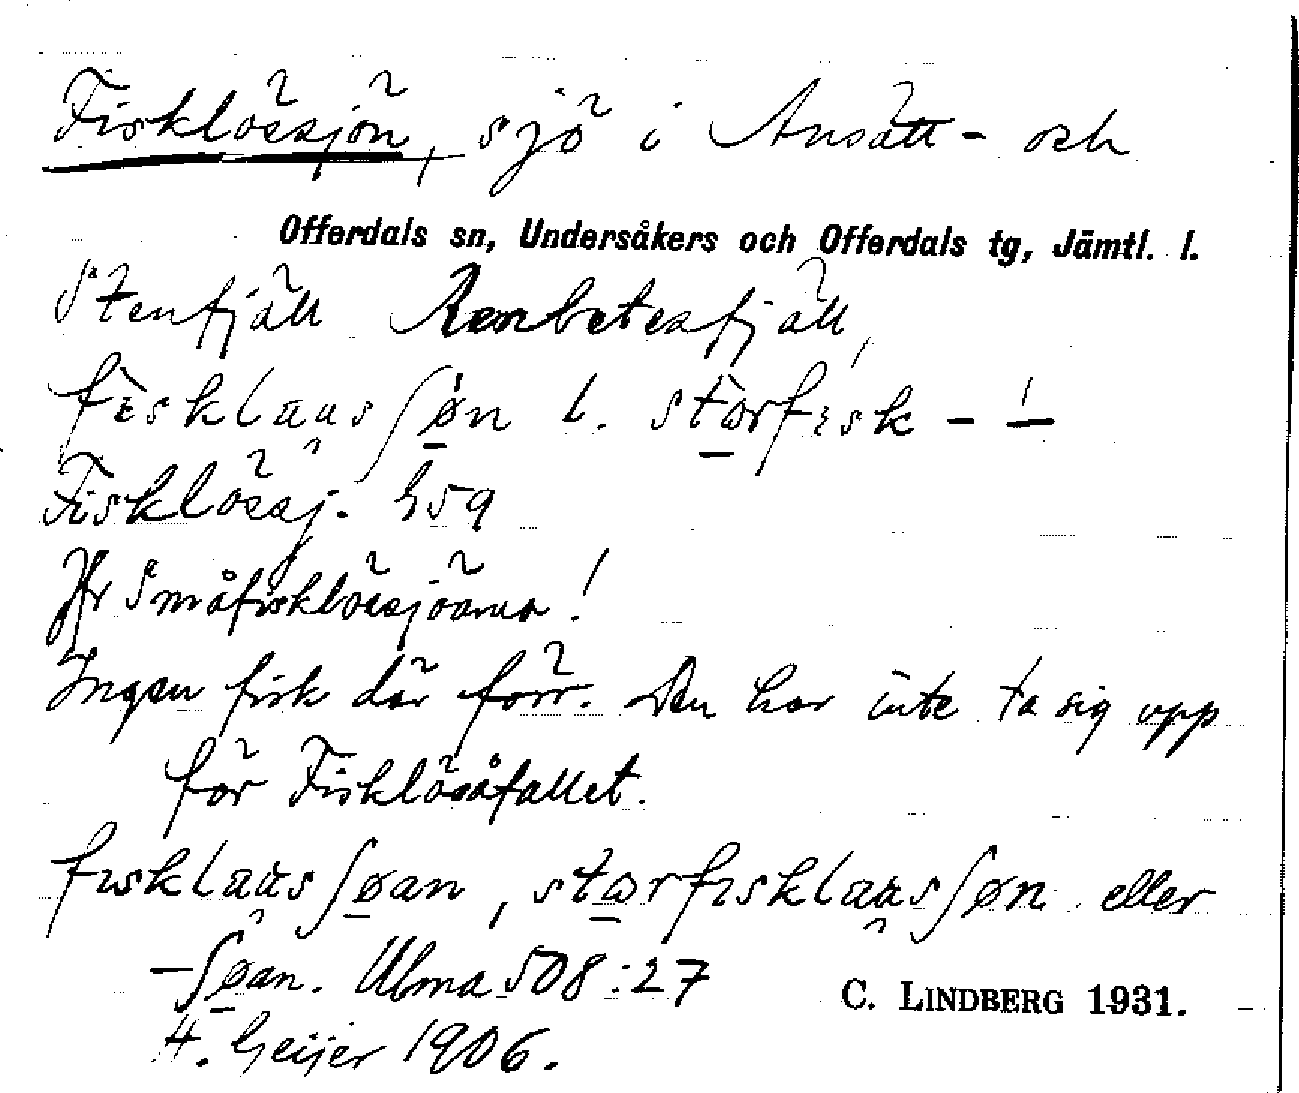 Fisklössjön, sjö i Ansätt- och
Offerdals sn, Undersåkers och Offerdals tg, Jämtl. l.
Stenfjäll Renbetesfjäll,
fɪsklaus ʃøn l. storfɪsk - -́
Fisklössj. h59
Jfr Småfisklössjöarna!
Ingen fisk där förr. Den har inte ta sig upp
för Fisklösåfallet.
fɪsklausʃøan, storfɪsklausʃøn eller
-ʃøan. Ulma 508:27
C. LINDBERG 1931.
H. Geijer 1906.